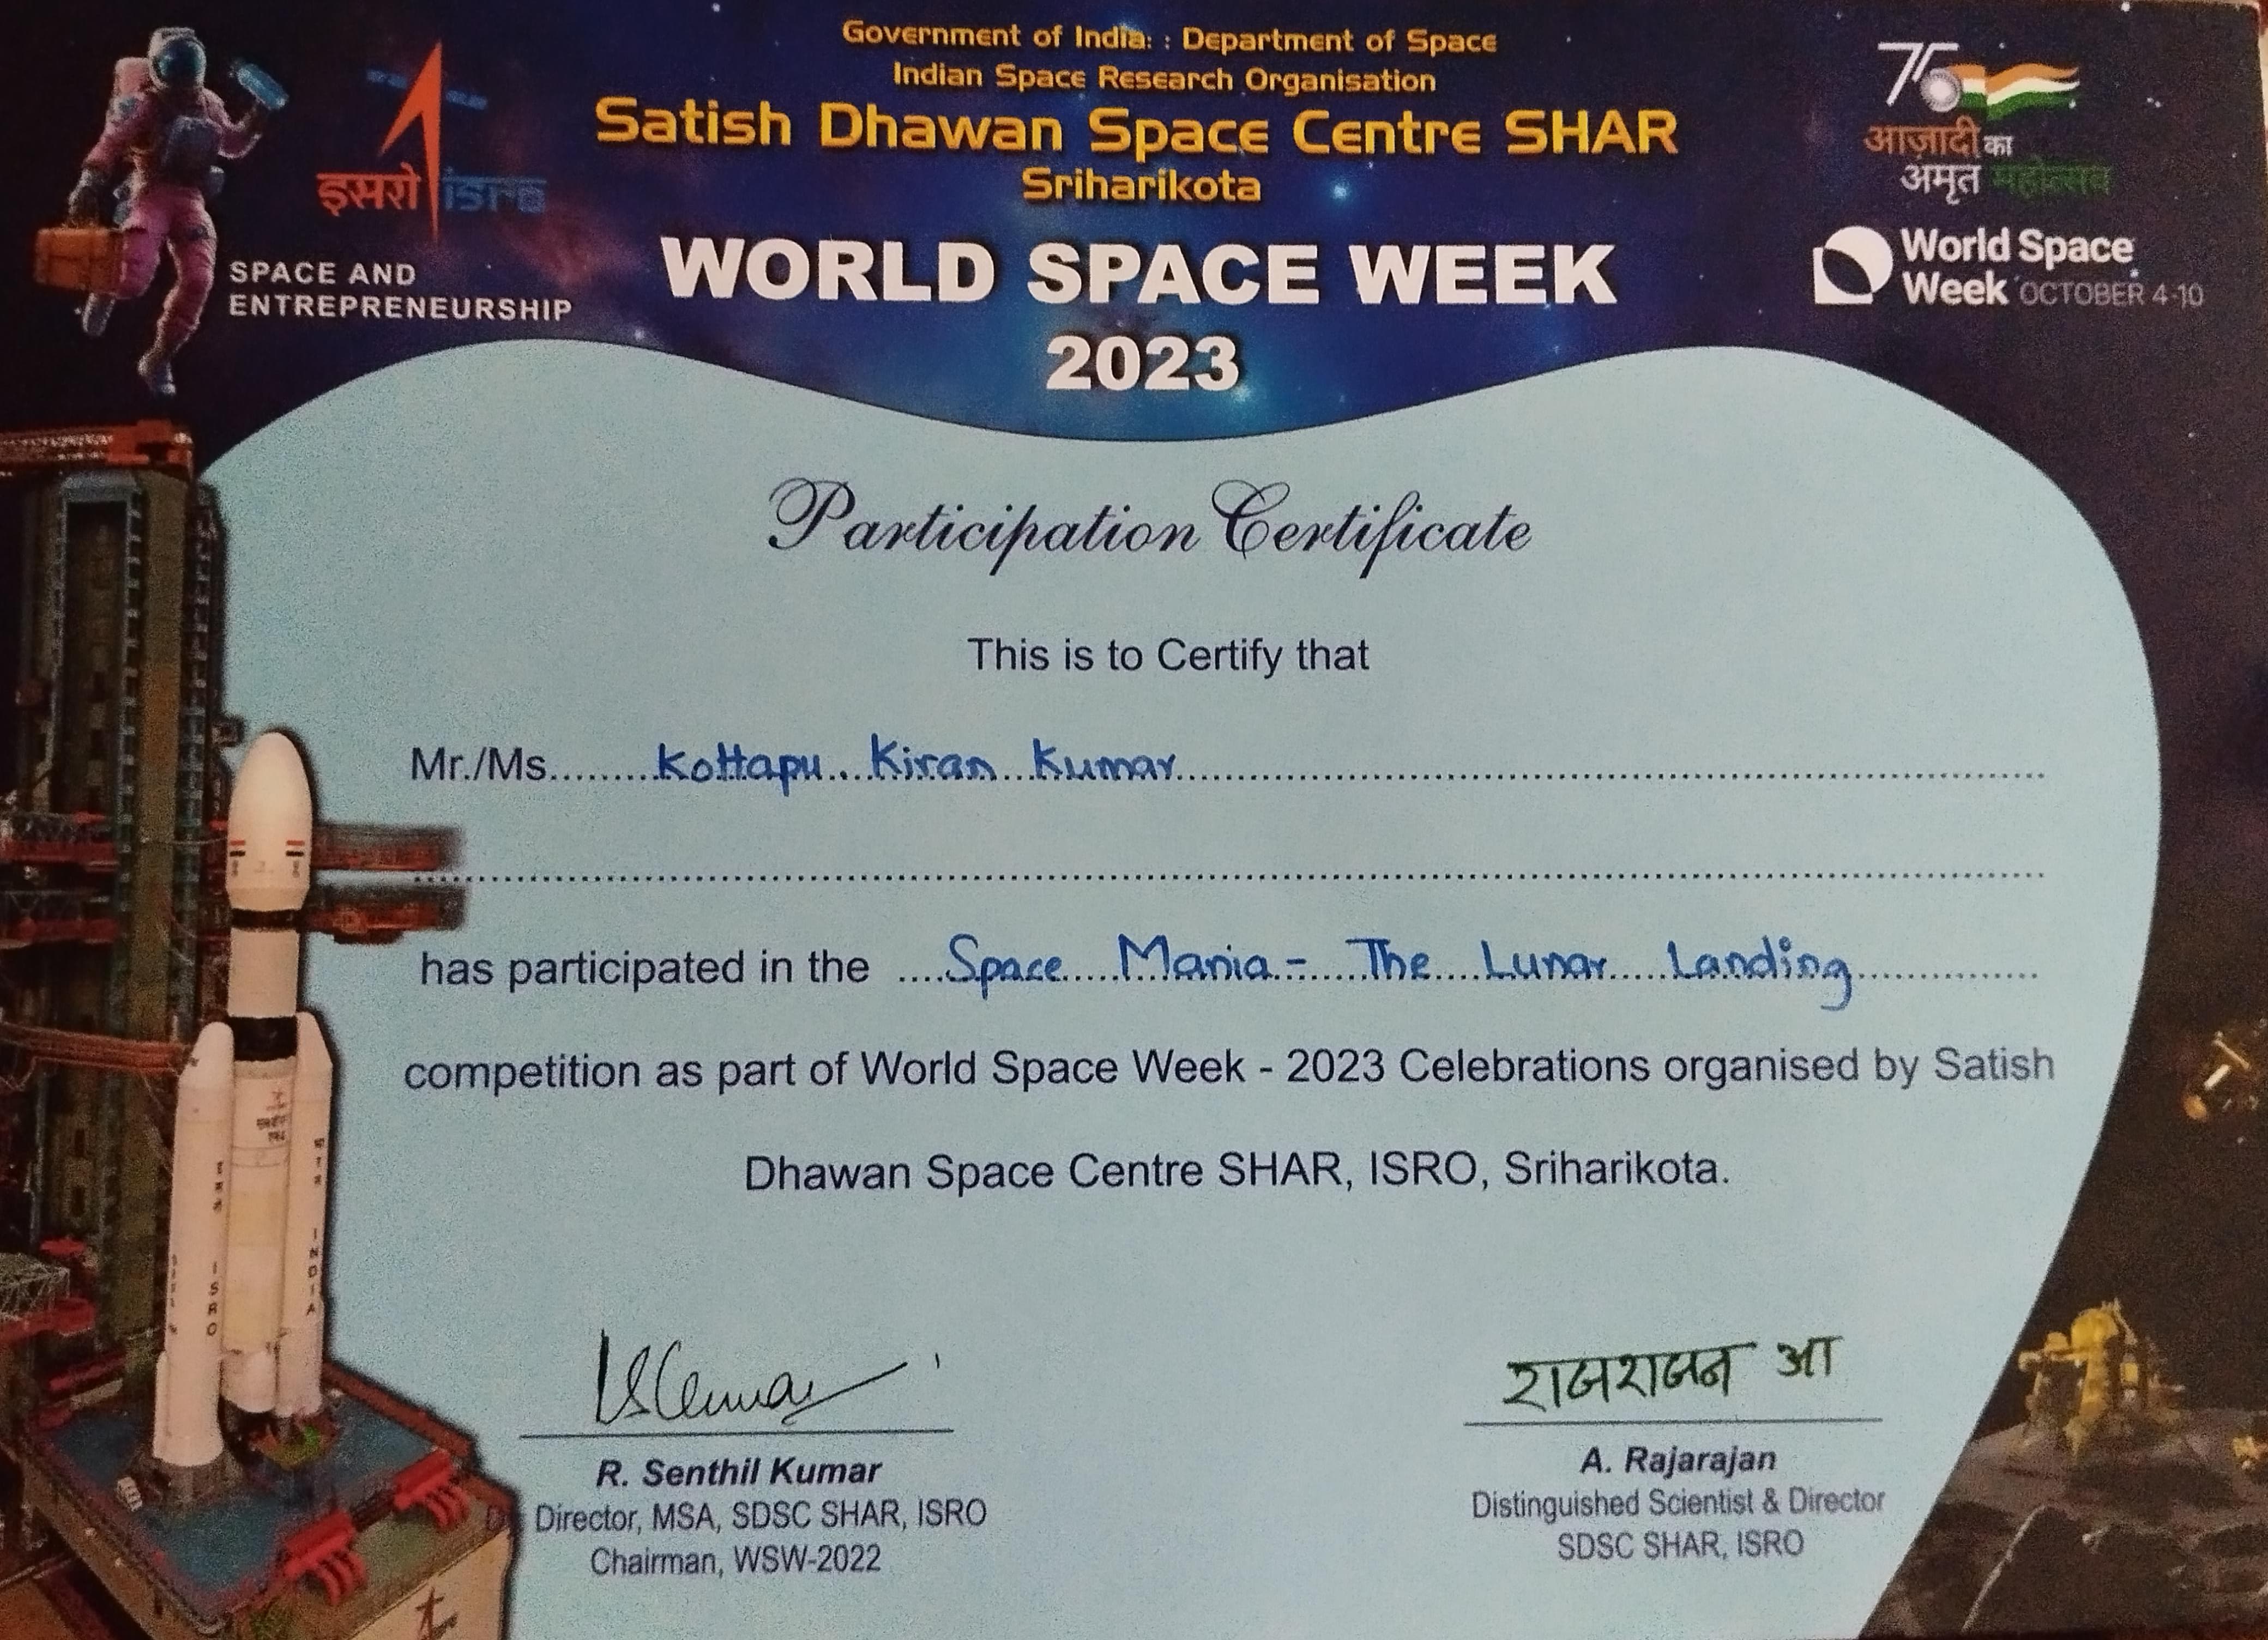 Government of India : Department of Space
Indian Space Research Organisation
Satish Dhawan Space Centre SHAR
Sriharikota
इसरो isro
SPACE AND
ENTREPRENEURSHIP
WORLD SPACE WEEK
2023
75
आज़ादी का
अमृत महोत्सव
World Space
Week OCTOBER 4-10
Participation Certificate
This is to Certify that
Mr./Ms. Kottapu Kiran Kumar
has participated in the Space Mania - The Lunar Landing
competition as part of World Space Week - 2023 Celebrations organised by Satish
Dhawan Space Centre SHAR, ISRO, Sriharikota.
ISRO
INDIA
राजराजन आ
R. Senthil Kumar
Director, MSA, SDSC SHAR, ISRO
Chairman, WSW-2022
A. Rajarajan
Distinguished Scientist & Director
SDSC SHAR, ISRO